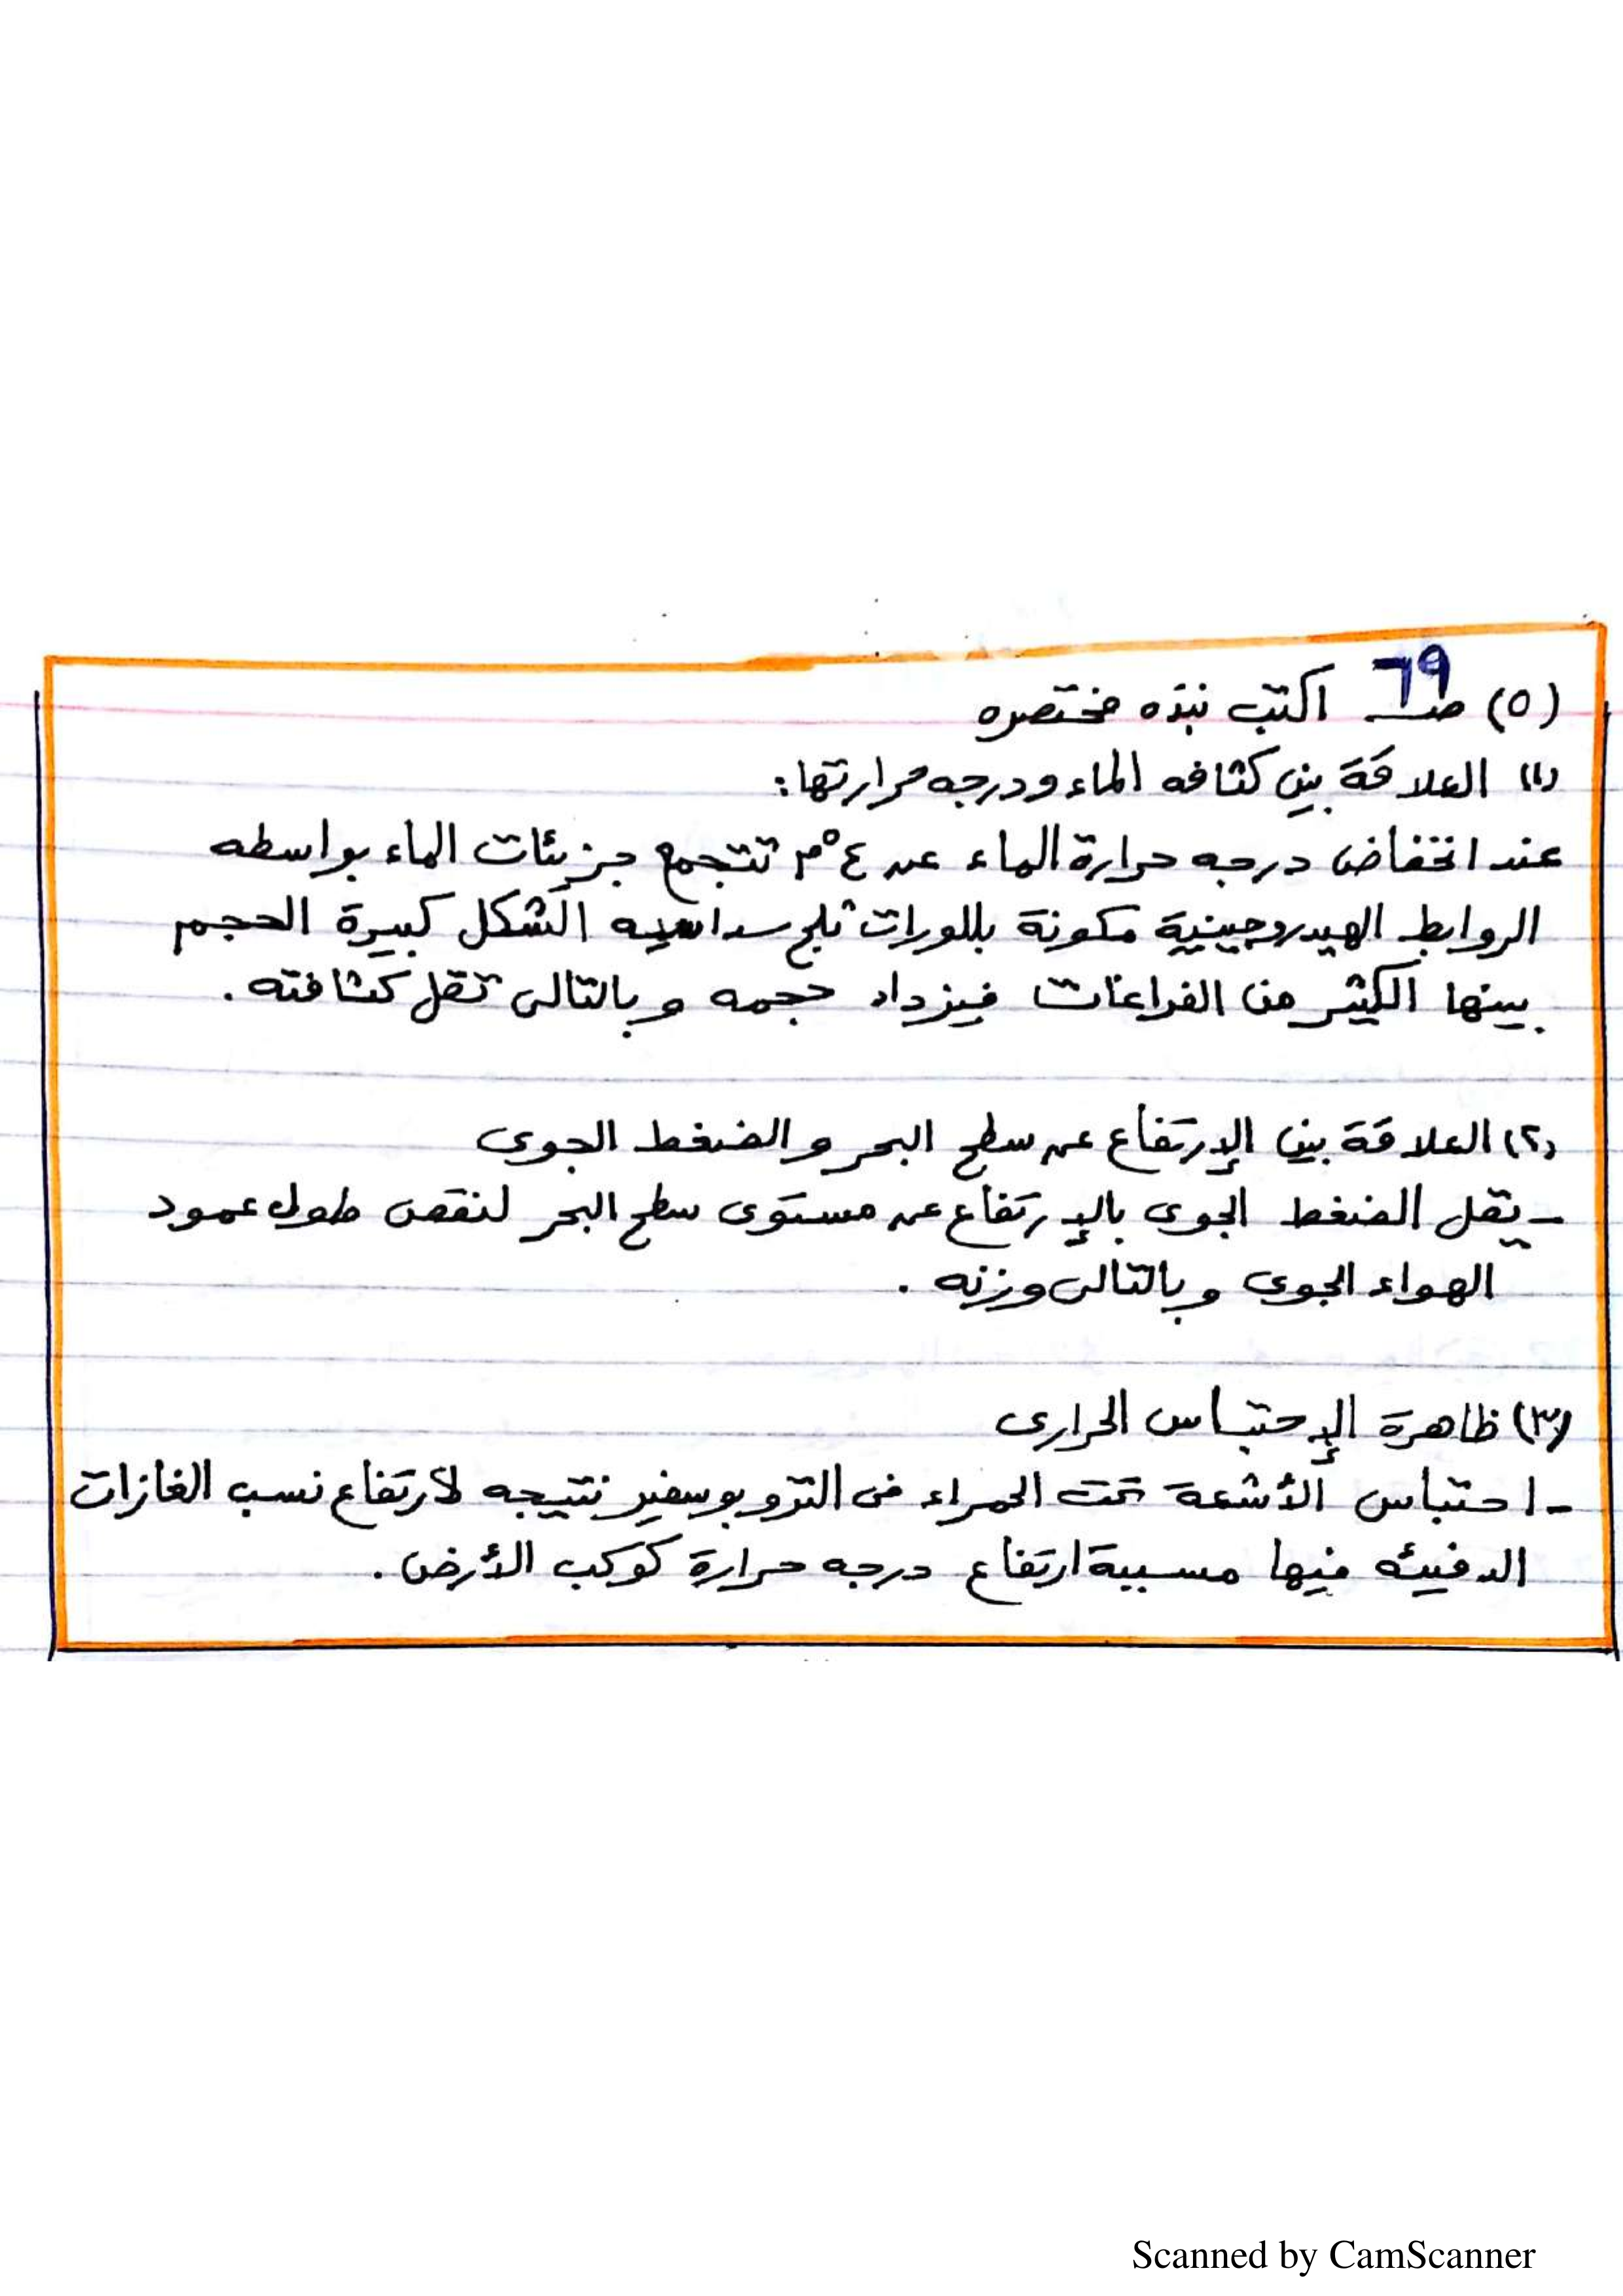 (٥) صـ ٦٩ اكتب نبذه مختصره
(١) العلاقة بين كثافه الماء ودرجه حرارتها:
عند انخفاض درجه حرارة الماء عن ٤°م تتجمع جزيئات الماء بواسطه
الروابط الهيدروجينية مكونة بللورات ثلج سداسيه الشكل كبيرة الحجم
بينها الكثير من الفراغات فيزداد حجمه وبالتالى تقل كثافته.
(٢) العلاقة بين الإرتفاع عن سطح البحر والضغط الجوى
- يقل الضغط الجوى بالإرتفاع عن مستوى سطح البحر لنقص طول عمود
الهواء الجوى وبالتالى وزنه.
(٣) ظاهرة الإحتباس الحرارى
- احتباس الأشعة تحت الحمراء فى التروبوسفير نتيجه لارتفاع نسب الغازات
الدفيئه فيها مسببة ارتفاع درجه حرارة كوكب الأرض.
Scanned by CamScanner